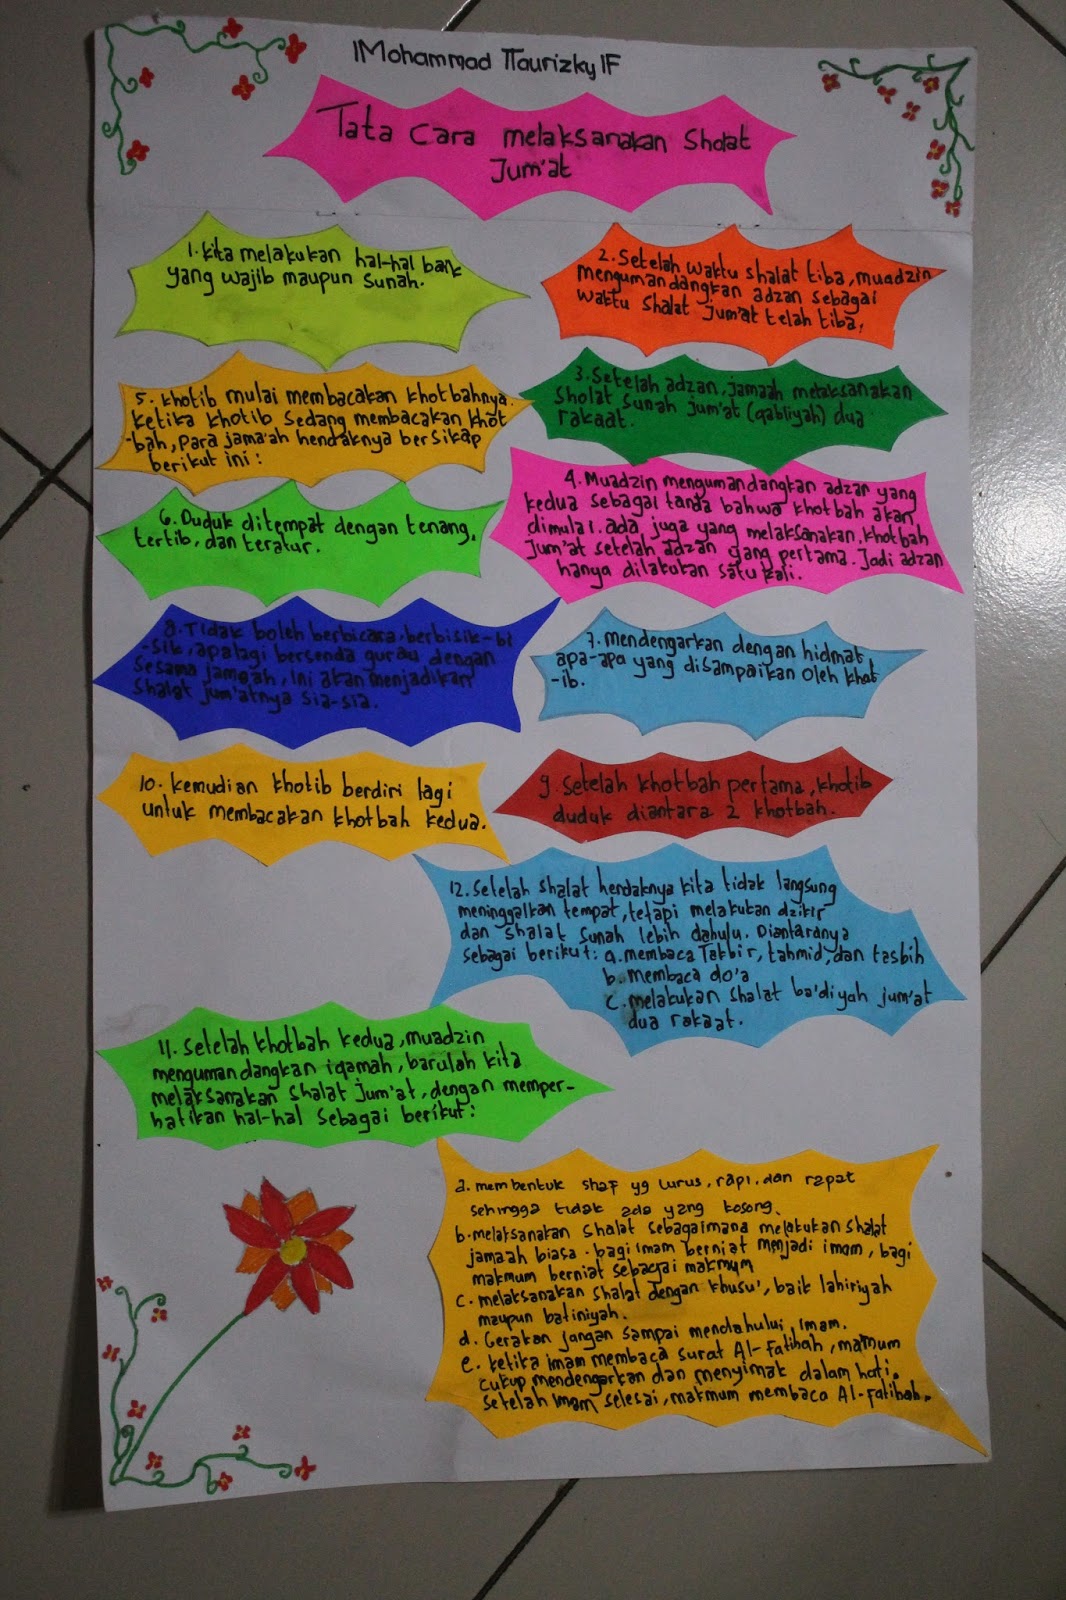 Mohammad Taurizky F
Tata Cara melaksanakan Sholat
Jum'at
1. Kita melakukan hal-hal baik
yang wajib maupun sunah.
2. Setelah waktu shalat tiba, muadzin
mengumandangkan adzan sebagai
waktu shalat Jum'at telah tiba.
3. Setelah adzan, jamaah melaksanakan
Sholat sunah jum'at (qabliyah) dua
rakaat.
4. Muadzin mengumandangkan adzan yang
kedua sebagai tanda bahwa khotbah akan
dimulai. ada juga yang melaksanakan khotbah
Jum'at setelah adzan yang pertama. Jadi adzan
hanya dilakukan satu kali.
5. Khotib mulai membacakan khotbahnya.
Ketika khotib sedang membacakan khot
-bah, para jama'ah hendaknya bersikap
berikut ini :
6. Duduk ditempat dengan tenang,
tertib, dan teratur.
7. mendengarkan dengan hidmat
apa-apa yang disampaikan oleh khat
-ib.
8. Tidak boleh berbicara, berbisik-bi
-sik, apalagi bersenda gurau dengan
sesama jamaah, ini akan menjadikan
shalat jum'atnya sia-sia.
9. Setelah khotbah pertama, khotib
duduk diantara 2 khotbah.
10. Kemudian khotib berdiri lagi
untuk membacakan khotbah kedua.
11. Setelah khotbah kedua, muadzin
mengumandangkan iqamah, barulah kita
melaksanakan shalat jum'at, dengan memper-
hatikan hal-hal sebagai berikut :
a. membentuk shaf yg lurus, rapi, dan rapat
sehingga tidak ada yang kosong.
b. melaksanakan shalat sebagaimana melakukan shalat
jamaah biasa. bagi imam berniat menjadi imam, bagi
makmum berniat sebagai makmum
c. melaksanakan shalat dengan khusu', baik lahiriyah
maupun batiniyah.
d. Gerakan jangan sampai mendahului imam.
e. ketika imam membaca surat Al-Fatihah, makmum
cukup mendengarkan dan menyimak dalam hati.
Setelah imam selesai, makmum membaca Al-fatihah.
12. Setelah shalat hendaknya kita tidak langsung
meninggalkan tempat, tetapi melakukan dzikir
dan shalat sunah lebih dahulu. Diantaranya
sebagai berikut : a. membaca Takbir, tahmid, dan tasbih
b. membaca do'a
c. melakukan shalat ba'diyah jum'at
dua rakaat.